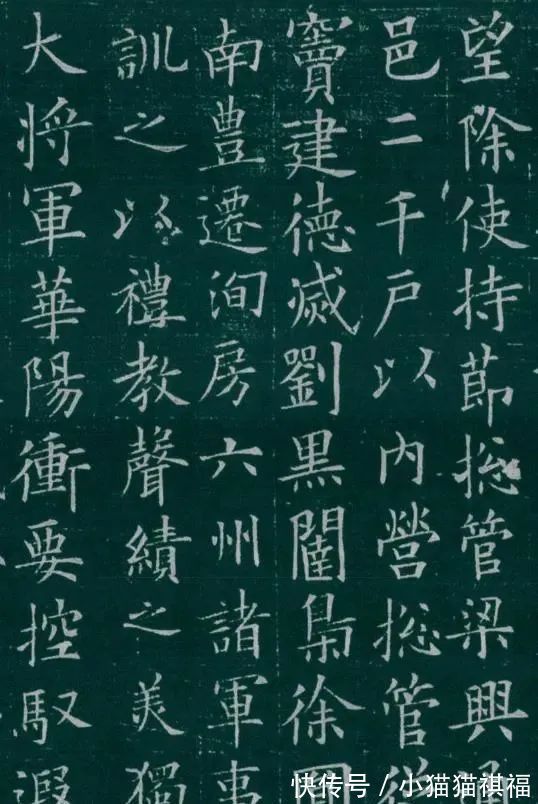 望除使持節揔管梁興
邑二千戶以內營揔管從
竇建德滅劉黒闥梟徐圓
南豊遷洵房六州諸軍事
訓之以禮教聲績之美獨
大將軍華陽衝要控馭遐
快传号／小猫猫祺福